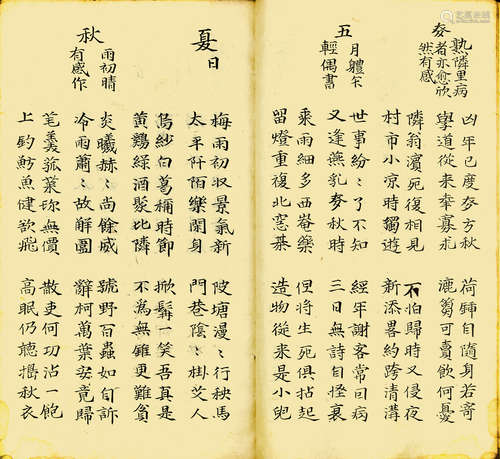 麥熟隣里病
者亦愈欣
然有感
凶年已度麥方秋 荷鍤自隨身若寄
學道從來幸寡求 漉篘可賣飲何憂
隣翁濱死復相見 不怕歸時又侵夜
村市小凉時獨遊 新添畧彴跨清溝
五月體不
輕偶書
世事紛〻了不知 經年謝客常因病
又逢燕乳麥秋時 三日無詩自怪衰
乘雨細多西崦藥 但將生死俱拈起
留燈重覆北窓棊 造物從來是小兒
夏日
梅雨初収景氣新 陂塘漫〻行秧馬
太平阡陌樂閑身 門巷陰〻掛艾人
烏紗白葛稱時節 掀髯一笑吾真是
黃鷄緑酒聚比隣 不爲無錐更難貧
秋雨初晴
有感作
炎曦赫〻尚餘威 號野百蟲如自訴
冷雨蕭〻故解圍 辭柯萬葉安竟歸
羹菰菜珍無價 散吏何功沾一飽
上釣魴魚健欲飛 高眠仍聽擣秋衣